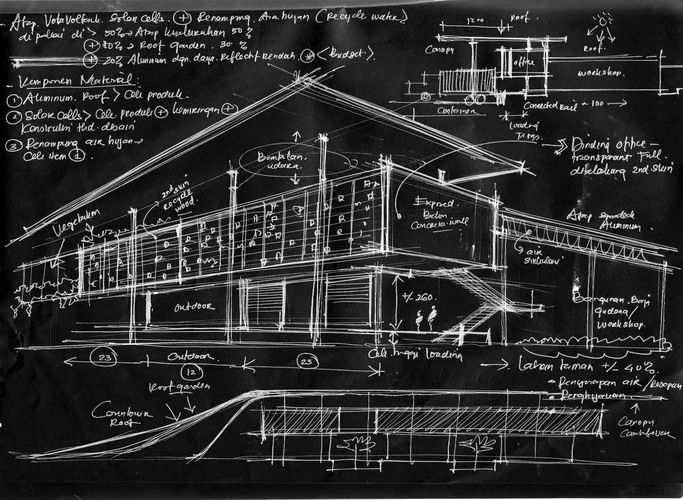 Atap. Solar Cells. + Penampung. Air hujan (recycle water)
di pakai di > 50% > Atap keseluruhan 50%
+ 30% > Roof garden. 30%
+ 20% Aluminum dgn. daya. Reflect rendah. * <Budget>.
- Komponen Material:
① Aluminum. Roof > Cek produk.
② Solar Cells > Cek produk + kemiringan +
Konstruksi thd. desain
③ Penampung air hujan →
Cek item ①.
1200
roof.
Canopy
office
Roof.
workshop.
Container
± 100 →
loading
Dinding office -
transparent Full.
dibelakang 2nd skin
udara.
Vegetation
2nd skin
recycle
wood.
Exposed
Beton
Concrete wall
Atap
Aluminum.
air
sirkulasi
outdoor
+/- 260.
Bangunan.
gudang/
workshop.
23
outdoor.
12
23
Cek tinggi loading
→ Lahan taman +/- 40%.
• Penyerapan air /Resapan
• Penghijauan
Roof garden
Roof
Canopy
Cantilever